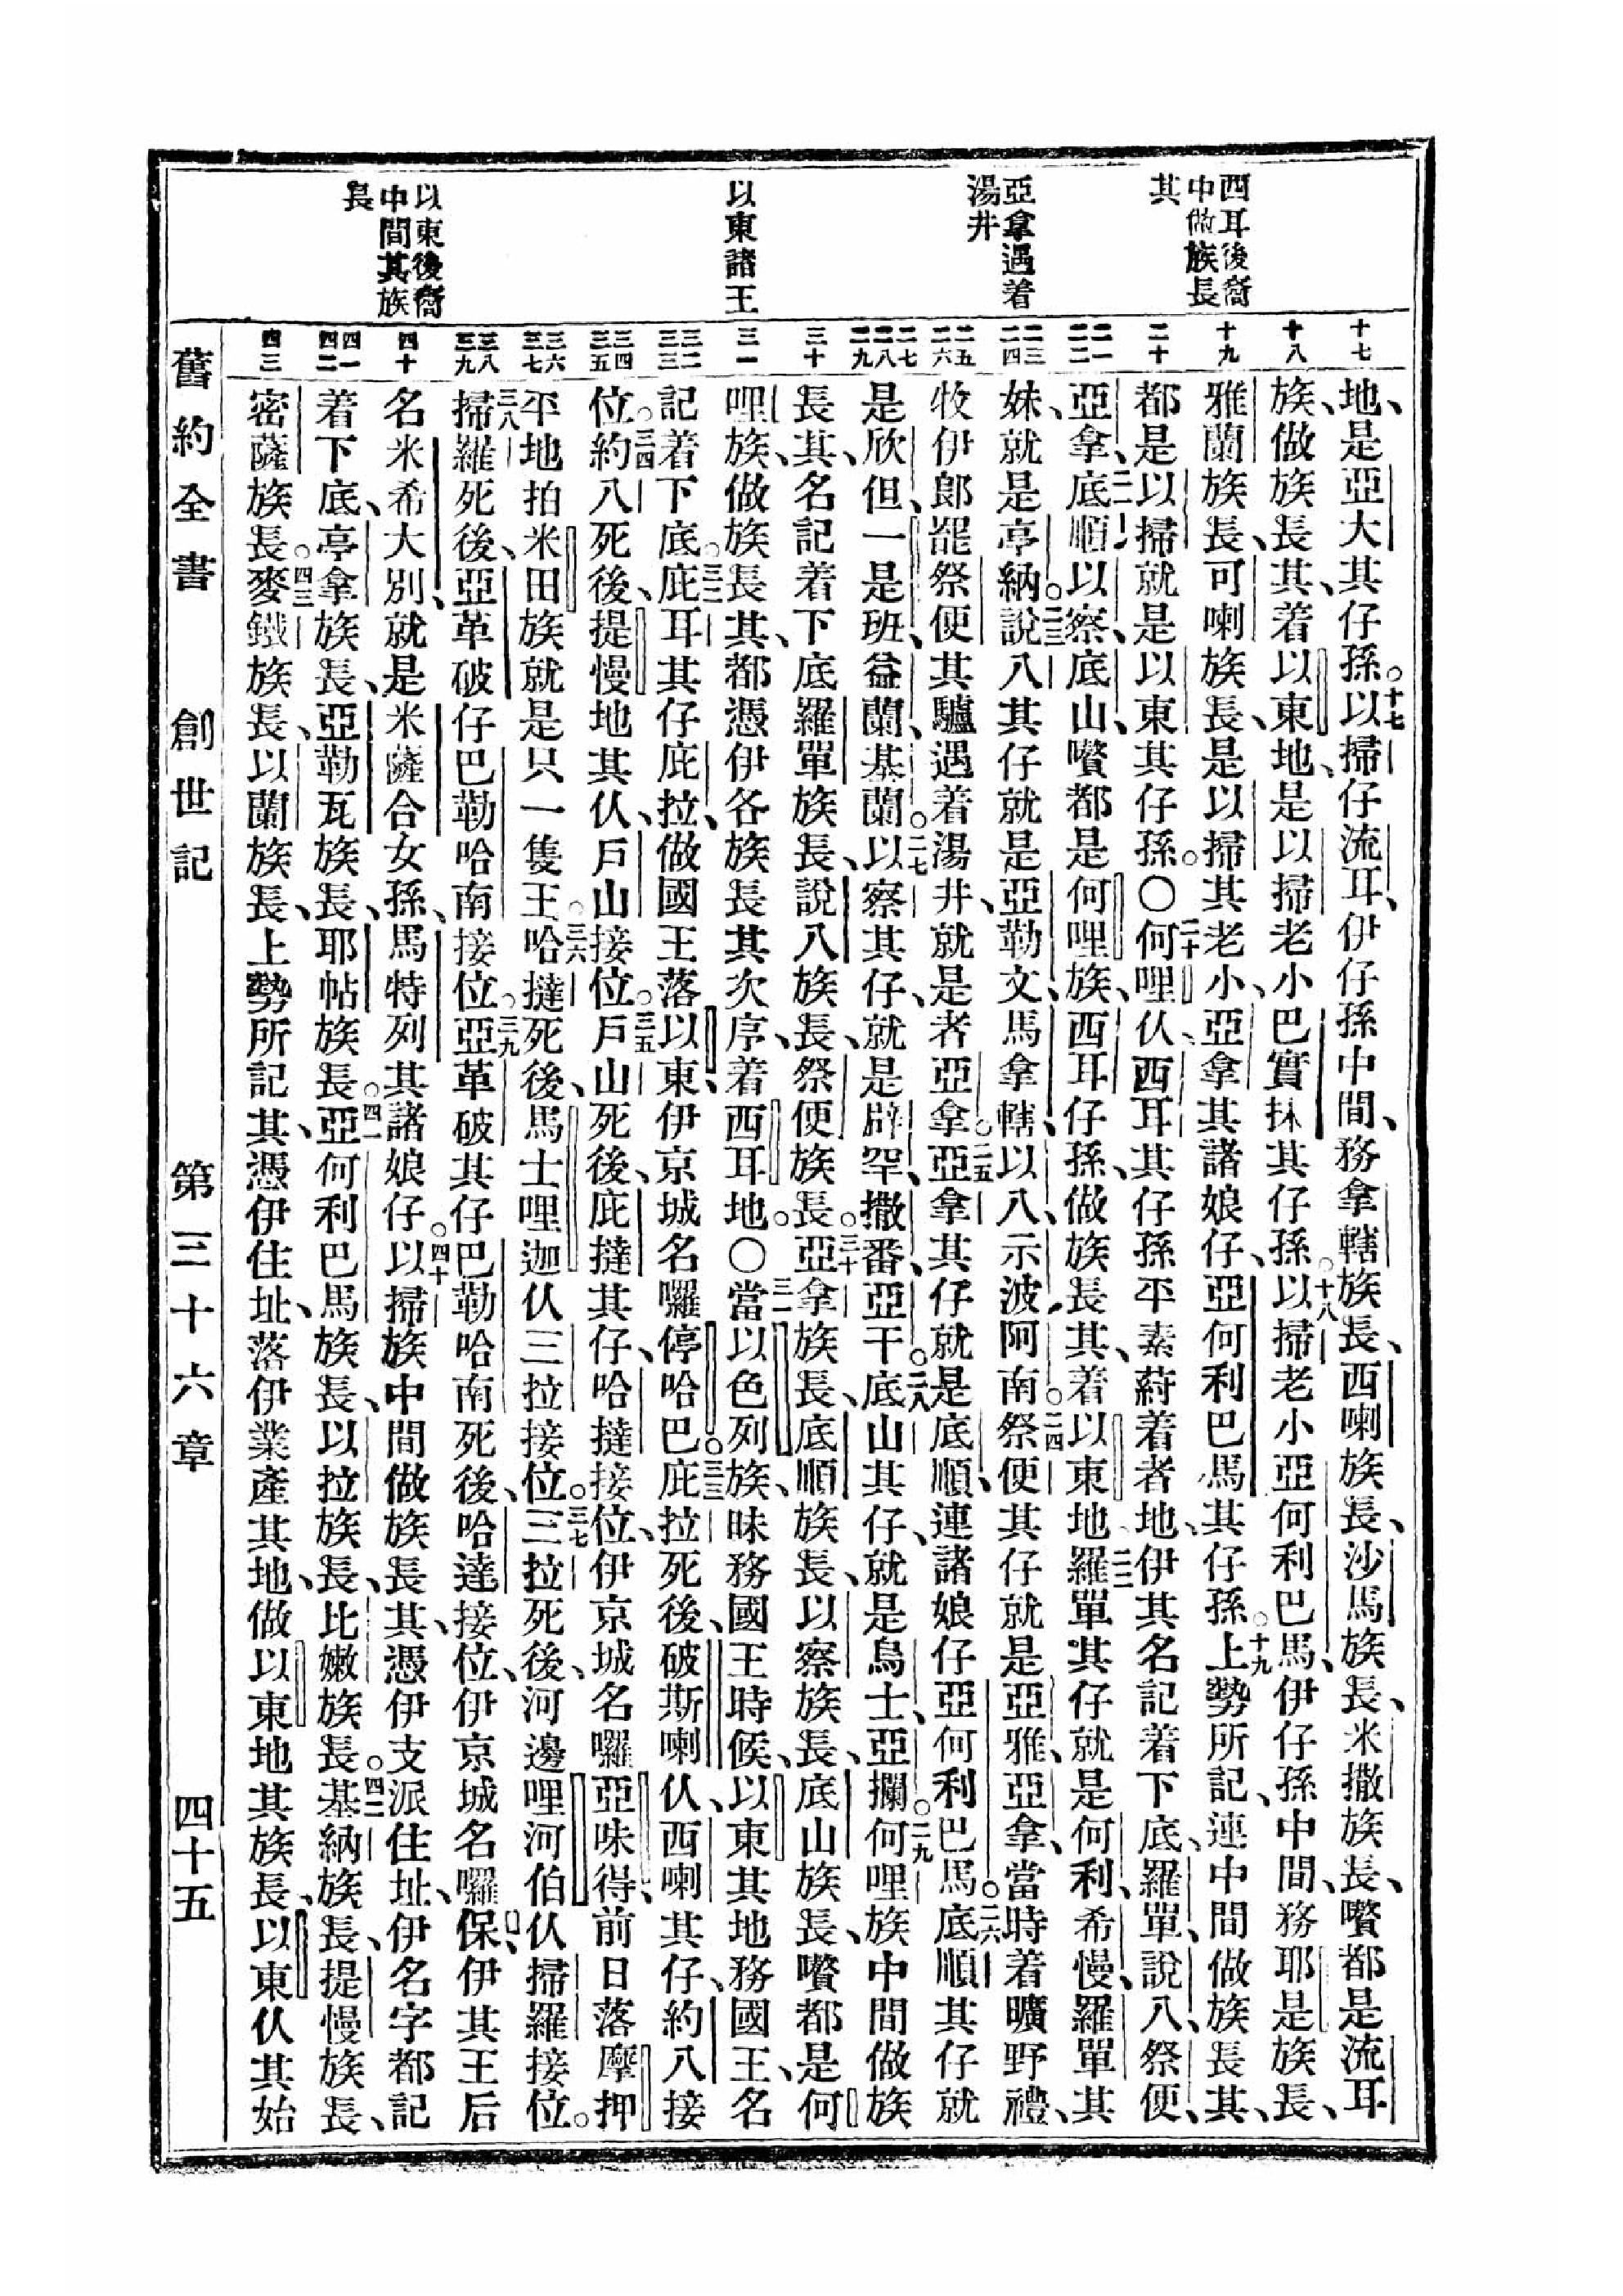 西耳後裔
中做族長
其
亞拿遇着
湯井
以東諸王
以東後裔
中間其族
長
十七
十八
十九
二十
二一
二二
二三
二四
二五
二六
二七
二八
二九
三十
三一
三二
三三
三四
三五
三六
三七
三八
三九
四十
四一
四二
四三
地、是亞大其仔孫。十七以掃仔流耳、伊仔孫中間、務拿轄族長、西喇族長、沙馬族長、米撒族長、嚽都是流耳
族、做族長其、着以東地、是以掃老小巴實抹其仔孫。十八以掃老小亞何利巴馬、伊仔孫中間、務耶是族長、
雅蘭族長、可喇族長、是以掃其老小、亞拿其諸娘仔、亞何利巴馬其仔孫。十九上勢所記、連中間做族長其、
都是以掃就是以東其仔孫。〇二十何哩仈、西耳其仔孫平素蒔着者地、伊其名記着下底、羅單、說八、祭便、
亞拿、二一底順、以察、底山、嚽都是何哩族、西耳仔孫、做族長其、着以東地、二二羅單其仔就是何利、希慢、羅單其
妹、就是亭納。二三說八其仔就是亞勒文、馬拿轄、以八、示波、阿南。二四祭便其仔就是亞雅、亞拿、當時着曠野禮、
牧伊郎罷祭便其驢遇着湯井、就是者亞拿。二五亞拿其仔就是底順、連諸娘仔亞何利巴馬。二六底順其仔就
是欣但、一是班、益蘭、基蘭。二七以察其仔、就是辟罕、撒番、亞干。二八底山其仔、就是烏士、亞攔。二九何哩族中間做族
長其、名記着下底、羅單族長、說八族長、祭便族長。三十亞拿族長、底順族長、以察族長、底山族長、嚽都是何
哩族、做族長其、都憑伊各族長其次序、着西耳地。〇三一當以色列族、昧務國王時候、以東其地務國王、名
記着下底。三二庇耳其仔庇拉、做國王落以東、伊京城名囉停哈巴。三三庇拉死後、破斯喇仈、西喇其仔、約八接
位。三四約八死後、提慢地其仈、戶山接位。三五戶山死後、庇撻其仔、哈撻接位、伊京城名囉亞味得、前日落摩押
平地拍米田族就是只一隻王。三六哈撻死後、馬士哩迦仈三拉接位。三七三拉死後、河邊哩河伯仈掃羅接位。
三八掃羅死後、亞革破仔巴勒哈南接位。三九亞革破其仔巴勒哈南死後、哈達接位、伊京城名囉保、伊其王后
名米希大別、就是米薩合女孫、馬特列其諸娘仔。四十以掃族中間做族長其、憑伊支派住址、伊名字都記
着下底、亭拿族長、亞勒瓦族長、耶帖族長。四一亞何利巴馬族長、以拉族長、比嫩族長。四二基納族長、提慢族長、
密薩族長。四三麥鐵族長、以蘭族長、上勢所記其、憑伊住址、落伊業產其地、做以東地其族長、以東仈其始
舊約全書　創世記　第三十六章　四十五